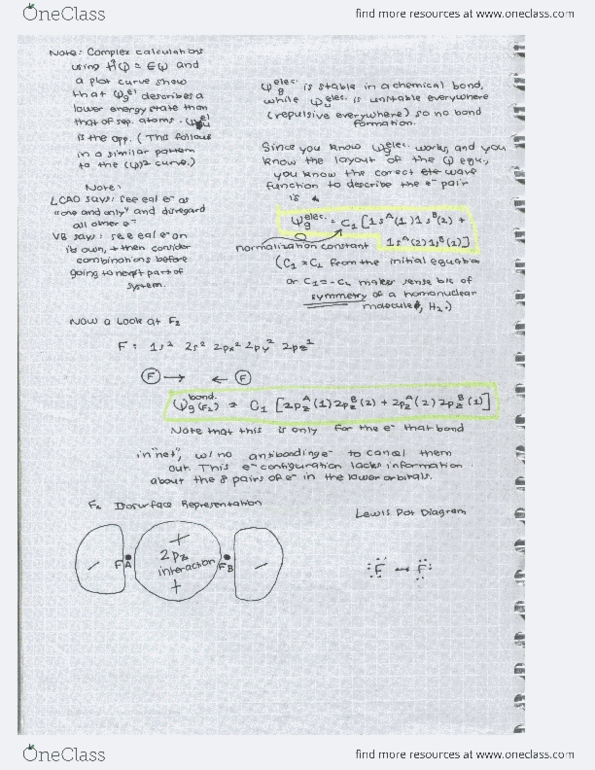 OneClass
find more resources at www.oneclass.com
Note: Complex calculations
using Ĥψ = Eψ and
a plot curve show
that ψg^el describes a
lower energy state than
that of sep. atoms. ψu^el
is the opp. (This follows
in a similar pattern
to the (ψ)² curve.)
Note:
LCAO says: see ea e⁻ as
"one and only" and disregard
all other e⁻
VB says: see ea e⁻ on
its own, + then consider
combinations before
going to next part of
system.
ψg^elec. is stable in a chemical bond,
while ψu^elec. is unstable everywhere
(repulsive everywhere) so no bond
formation.
Since you know ψg^elec. works, and you
know the layout of the ψ equ,
you know the correct wave
function to describe the e⁻ pair
is
ψg^elec. = C₁[1s^A(1)1s^B(2) +
1s^A(2)1s^B(1)]
normalization constant
(C₁ = C₂ from the initial equation
or C₁=-C₂ makes sense b/c of
symmetry of a homonuclear
molecule, H₂.)
Now a Look at F₂
F: 1s² 2s² 2px² 2py² 2pz¹
F → ← F
ψg(F₂)^bond. = C₁ [2pz^A(1)2pz^B(2) + 2pz^A(2)2pz^B(1)]
Note that this is only for the e⁻ that bond
in "net", w/ no antibonding e⁻ to cancel them
out. This e⁻ configuration lacks information
about the 8 pairs of e⁻ in the lower orbitals.
F₂ Isosurface Representation
Lewis Dot Diagram
- FA + 2pz interaction + FB -
:F̈ — F̈:
OneClass
find more resources at www.oneclass.com